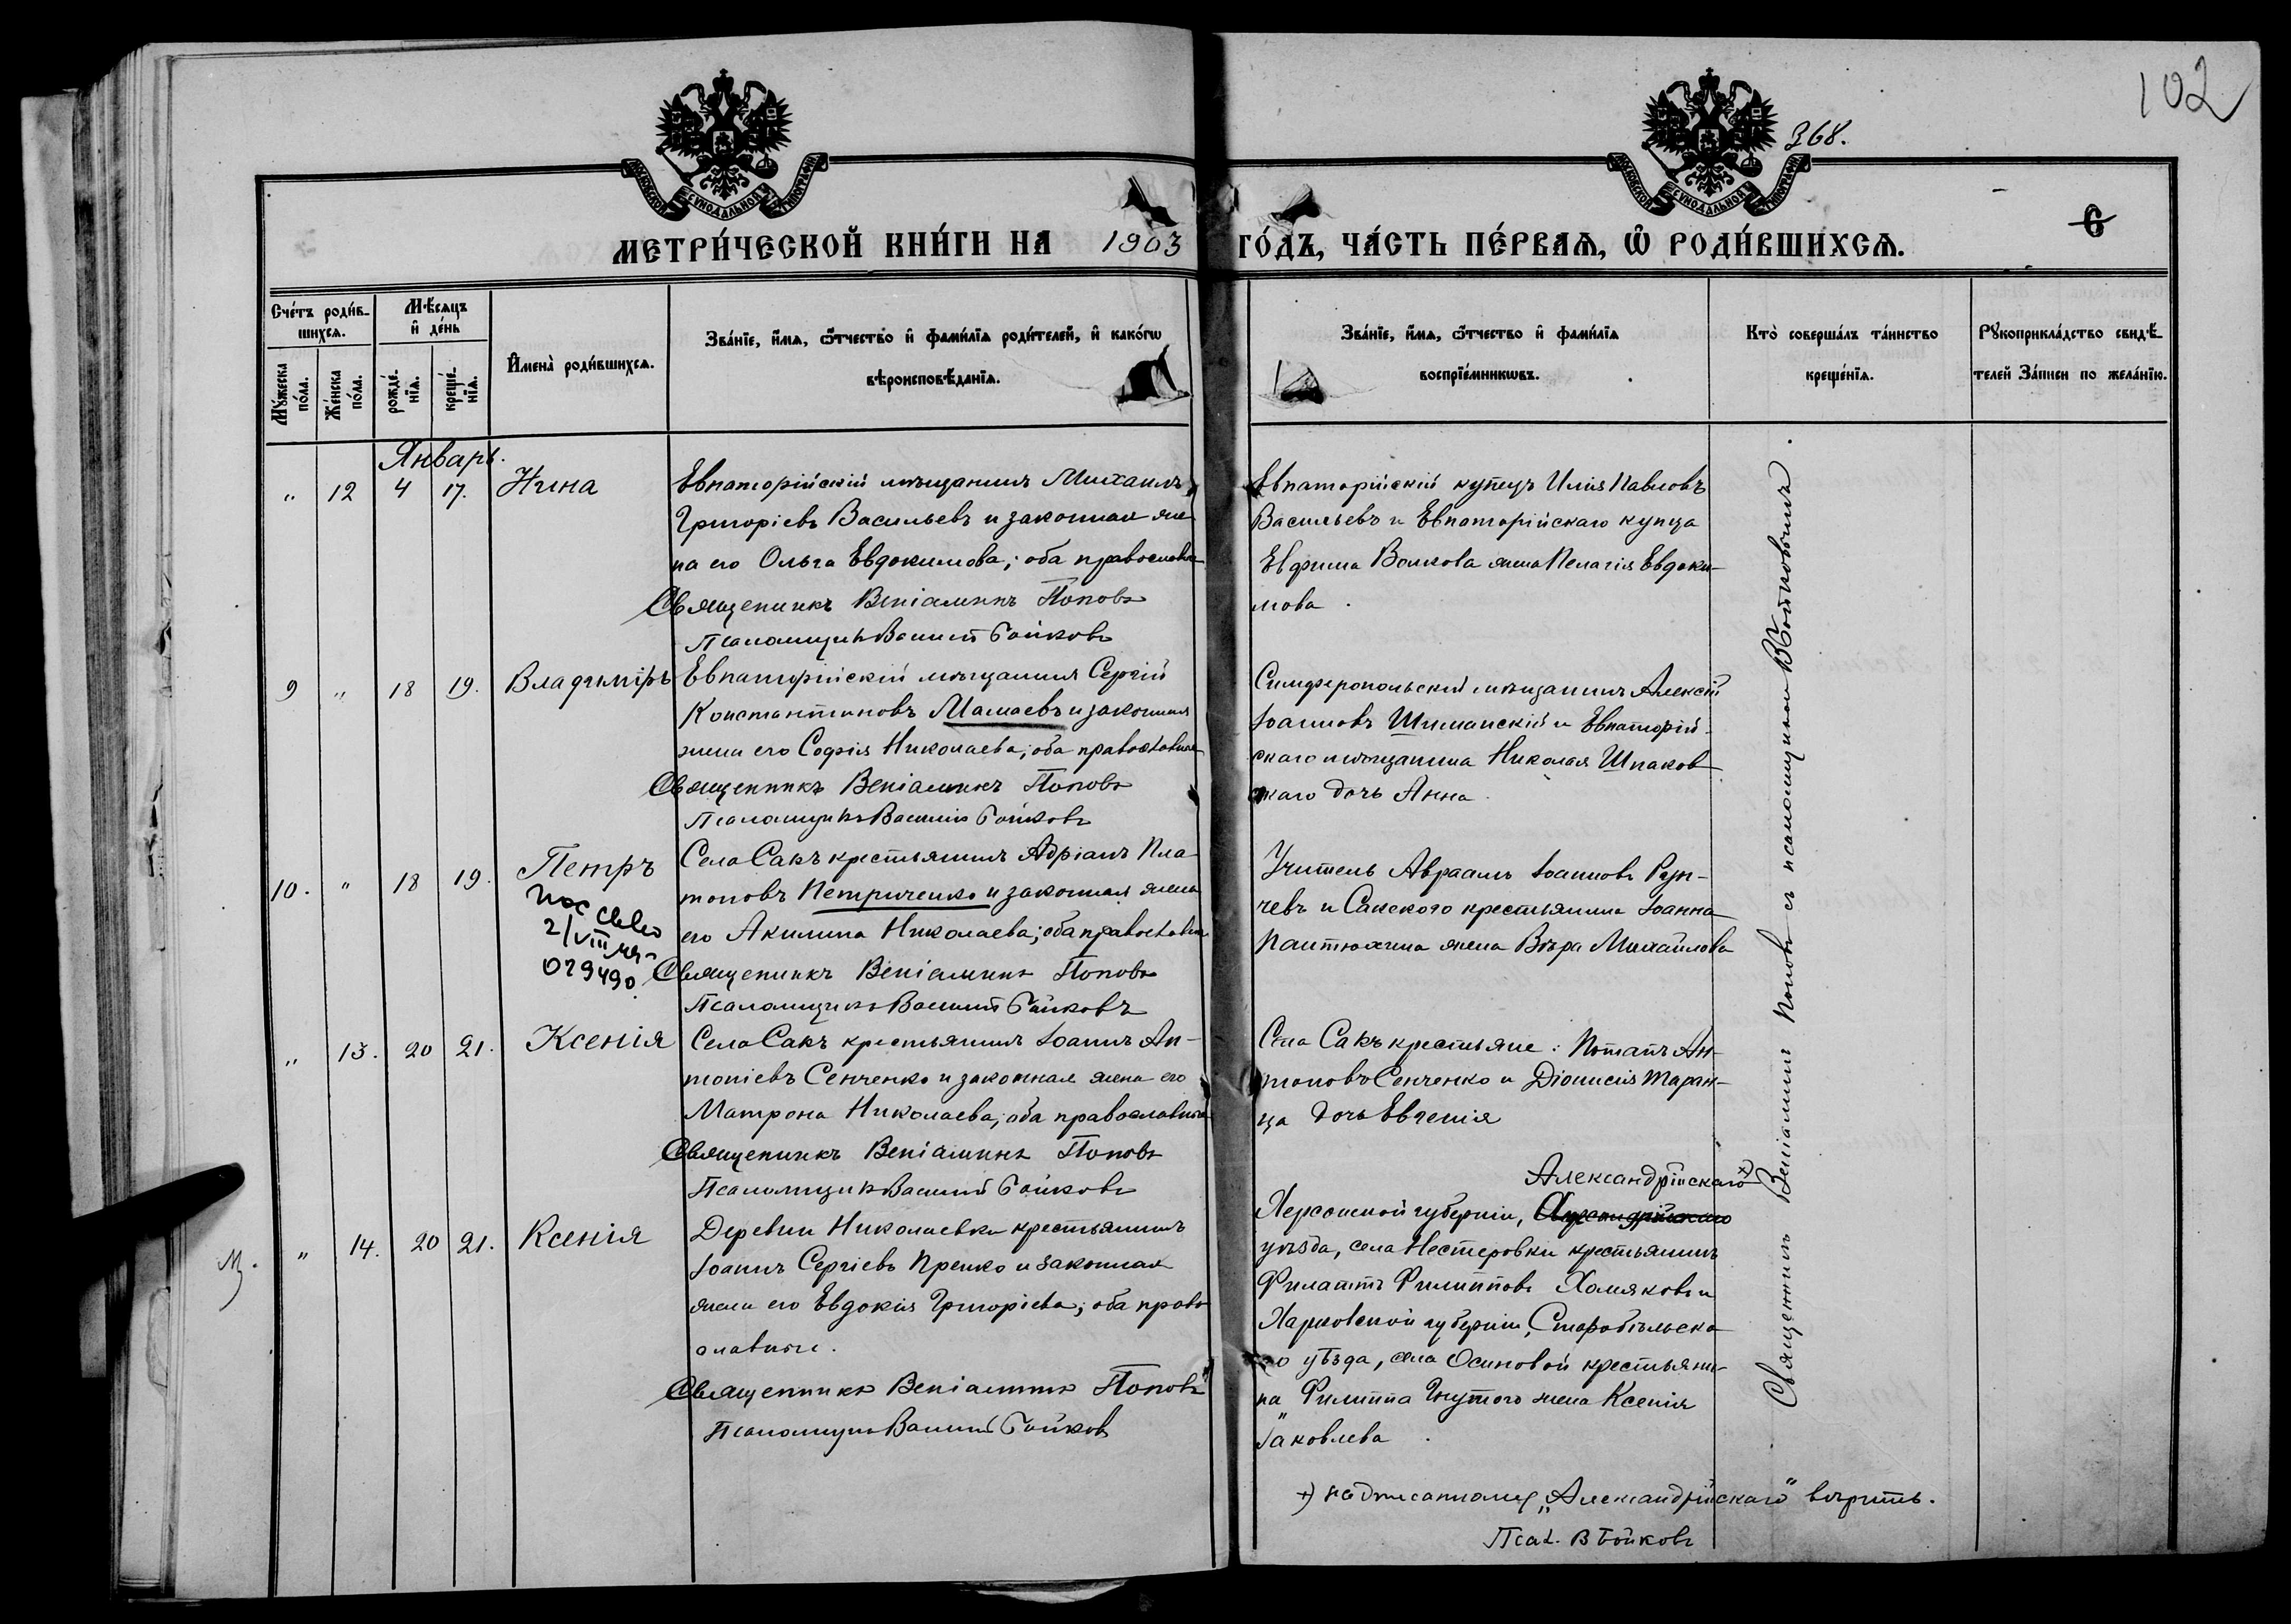 102
368.
6
МОСКОВСКОЙ СѴНОДАЛЬНОЙ ТИПОГРАФІИ
МОСКОВСКОЙ СѴНОДАЛЬНОЙ ТИПОГРАФІИ
МЕТРИ́ЧЕСКОЙ КНИ́ГИ НА 1903 ГО́ДЪ, ЧА́СТЬ ПЕ́РВАѦ, Ѡ҆ РОДИ́ВШИХСѦ.
Сче́тъ роди́в-
шихсѧ.
Му́жеска по́ла.
Же́нска по́ла.
Мѣ́сѧцъ
и҆ де́нь
рожде́-
нїѧ.
креще́-
нїѧ.
И҆мена̀ роди́вшихсѧ.
Зва́нїе, и҆́мѧ, ѻ҆́тчество и҆ фами́лїѧ роди́телей, и҆ како́гѡ
вѣроисповѣ́данїѧ.
Зва́нїе, и҆́мѧ, ѻ҆́тчество и҆ фами́лїѧ
воспрїе́мникѡвъ.
Кто̀ соверша́лъ та́инство
креще́нїѧ.
Рꙋкоприкла́дство свидѣ́-
телей за́писи по жела́нїю.
Январь.
" 12 4 17. Нина
Евпаторійскій мѣщанинъ Михаилъ
Григоріевъ Васильевъ и законная же-
на его Ольга Евдокимова; оба православн.
Священникъ Веніаминъ Поповъ
Псаломщикъ Василій Бойковъ
Евпаторійскій купецъ Илія Павловъ
Васильевъ и Евпаторійскаго купца
Евфима Волкова жена Пелагія Евдоки-
мова.
9 " 18 19. Владиміръ
Евпаторійскій мѣщанинъ Сергій
Константиновъ Мамаевъ и законная
жена его Софія Николаева; оба православные
Священникъ Веніаминъ Поповъ
Псаломщикъ Василій Бойковъ
Симферопольскій мѣщанинъ Алексій
Іоанновъ Шиманскій и Евпаторій-
скаго мѣщанина Николая Шпаков-
скаго дочь Анна.
10. " 18 19. Петръ
2/VIII
029490
Села Сакъ крестьянинъ Адріанъ Пла-
тоновъ Петриченко и законная жена
его Акилина Николаева; оба православн.
Священникъ Веніаминъ Поповъ
Псаломщикъ Василій Бойковъ
Учитель Авраамъ Іоанновъ
чевъ и Сакского крестьянина Іоанна
Пантюхина жена Вѣра Михайлова
" 13. 20 21. Ксенія
Села Сакъ крестьянинъ Іоаннъ Ан-
тоніевъ Сенченко и законная жена его
Матрона Николаева; оба православные
Священникъ Веніаминъ Поповъ
Псаломщикъ Василій Бойковъ
Села Сакъ крестьяне: Потапъ Ан-
тоновъ Сенченко и Діонисія Таран-
ца дочь Евгенія
" 14. 20 21. Ксенія
Деревни Николаевки крестьянинъ
Іоаннъ Сергіевъ Пренко и законная
жена его Евдокія Григоріева; оба право-
славные.
Священникъ Веніаминъ Поповъ
Псаломщикъ Василій Бойков
Александрійскаго +)
Херсонской губерніи,
уѣзда, села Нестеровки крестьянинъ
Филаѳтъ Филипповъ Хомяковъ и
Харковской губерніи, Старобѣльска-
го уѣзда, села Осиновой крестьяни-
на Филиппа Гнутого жена Ксенія
Іаковлева.
+) надписанному „Александрійскаго" вѣрить.
Псал. В Бойковъ
Священникъ Веніаминъ Поповъ съ псаломщикомъ В Бойковымъ.